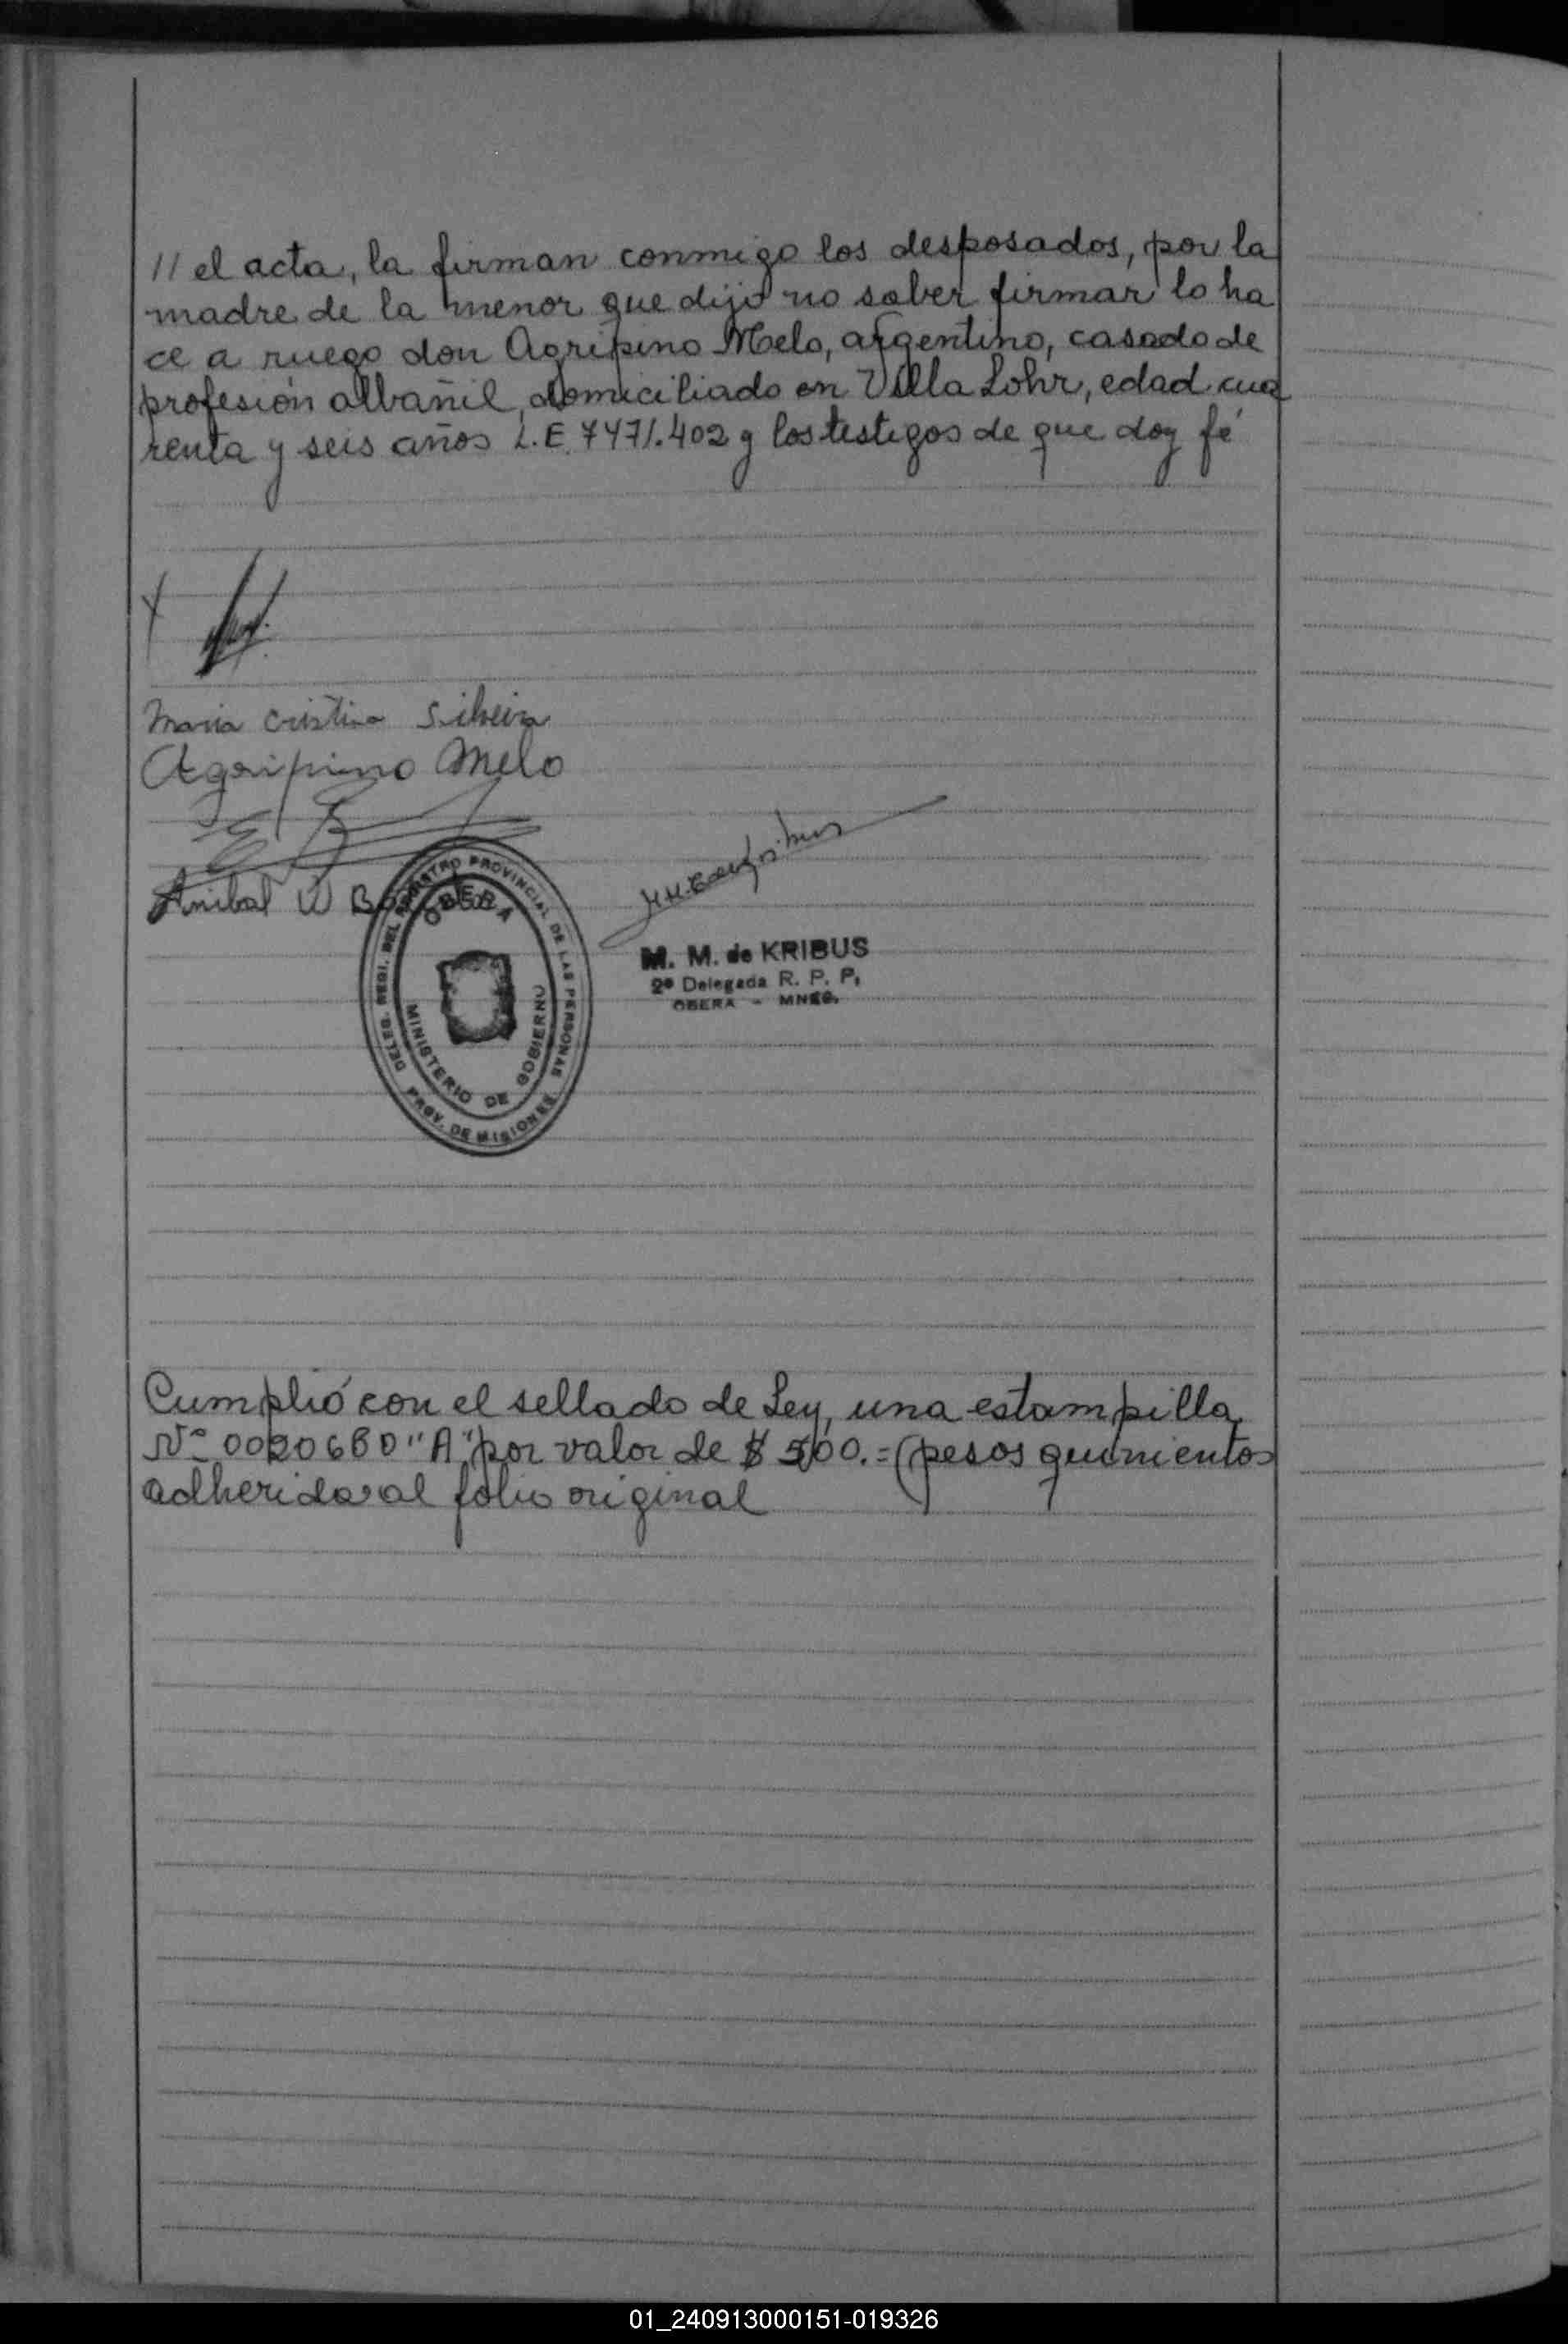 // el acta, la firman conmigo los desposados, por la
madre de la menor que dijo no saber firmar lo ha
ce a ruego don Agripino Melo, argentino, casado de
profesión albañil, domiciliado en Villa Lohr, edad cua
renta y seis años L.E. 7471.402 y los testigos de que doy fé
Maria Cristina Silveira
Agripino Melo
Anibal W
DELEG. REGI. DEL REGISTRO PROVINCIAL DE LAS PERSONAS
OBERA
MINISTERIO DE GOBIERNO
PROV. DE MISIONES
M. M. de KRIBUS
2ª Delegada R. P. P.
OBERA - MNES.
Cumplió con el sellado de Ley, una estampilla
Nº 0020680 "A" por valor de $ 500.= (pesos quinientos
adherida al folio original
01_240913000151-019326